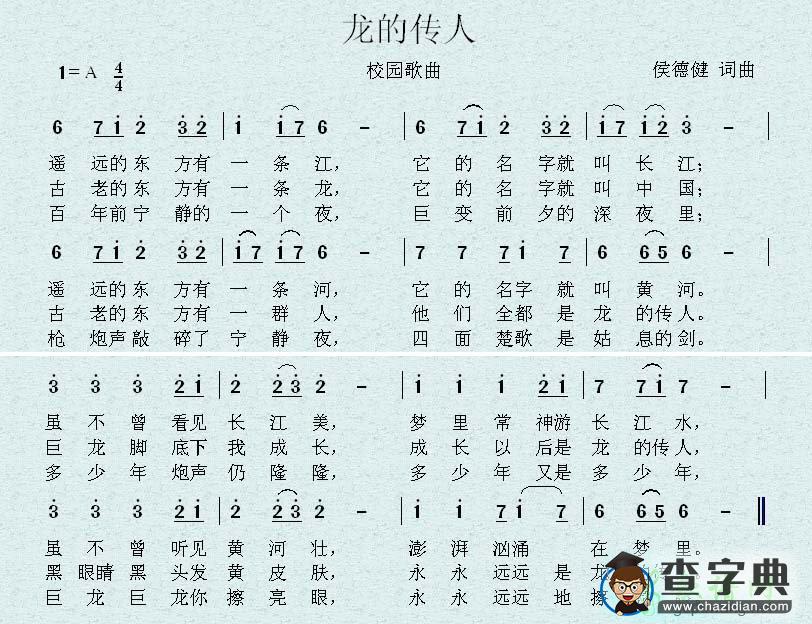 龙的传人
1=A 4/4 校园歌曲 侯德健 词曲
6 7 1 2 3 2 | 1 1 7 6 - | 6 7 1 2 3 2 | 1 7 1 2 3 - |
遥 远的 东 方有 一 条 江， 它 的 名 字就 叫 长 江；
古 老的 东 方有 一 条 龙， 它 的 名 字就 叫 中 国；
百 年前 宁 静的 一 个 夜， 巨 变 前 夕的 深 夜 里；
6 7 1 2 3 2 | 1 7 1 7 6 - | 7 7 7 1 7 | 6 6 5 6 - |
遥 远的 东 方有 一 条 河， 它 的 名字 就 叫 黄 河。
古 老的 东 方有 一 群 人， 他 们 全都 是 龙 的传 人。
枪 炮声 敲 碎了 宁 静 夜， 四 面 楚歌 是 姑 息的 剑。
3 3 3 2 1 | 2 2 3 2 - | 1 1 1 2 1 | 7 7 1 7 - |
虽 不 曾 看见 长 江 美， 梦 里 常 神游 长 江 水，
巨 龙 脚 底下 我 成 长， 成 长 以 后是 龙 的传 人，
多 少 年 炮声 仍 隆 隆， 多 少 年 又是 多 少 年，
3 3 3 2 1 | 2 2 3 2 - | 1 1 7 1 7 | 6 6 5 6 - ‖
虽 不 曾 听见 黄 河 壮， 澎 湃 汹涌 在 梦 里。
黑 眼睛 黑 头发 黄 皮 肤， 永 永 远远 是 龙
巨 龙 巨 龙你 擦 亮 眼， 永 永 远远 地 擦
查字典
www.chazidian.com